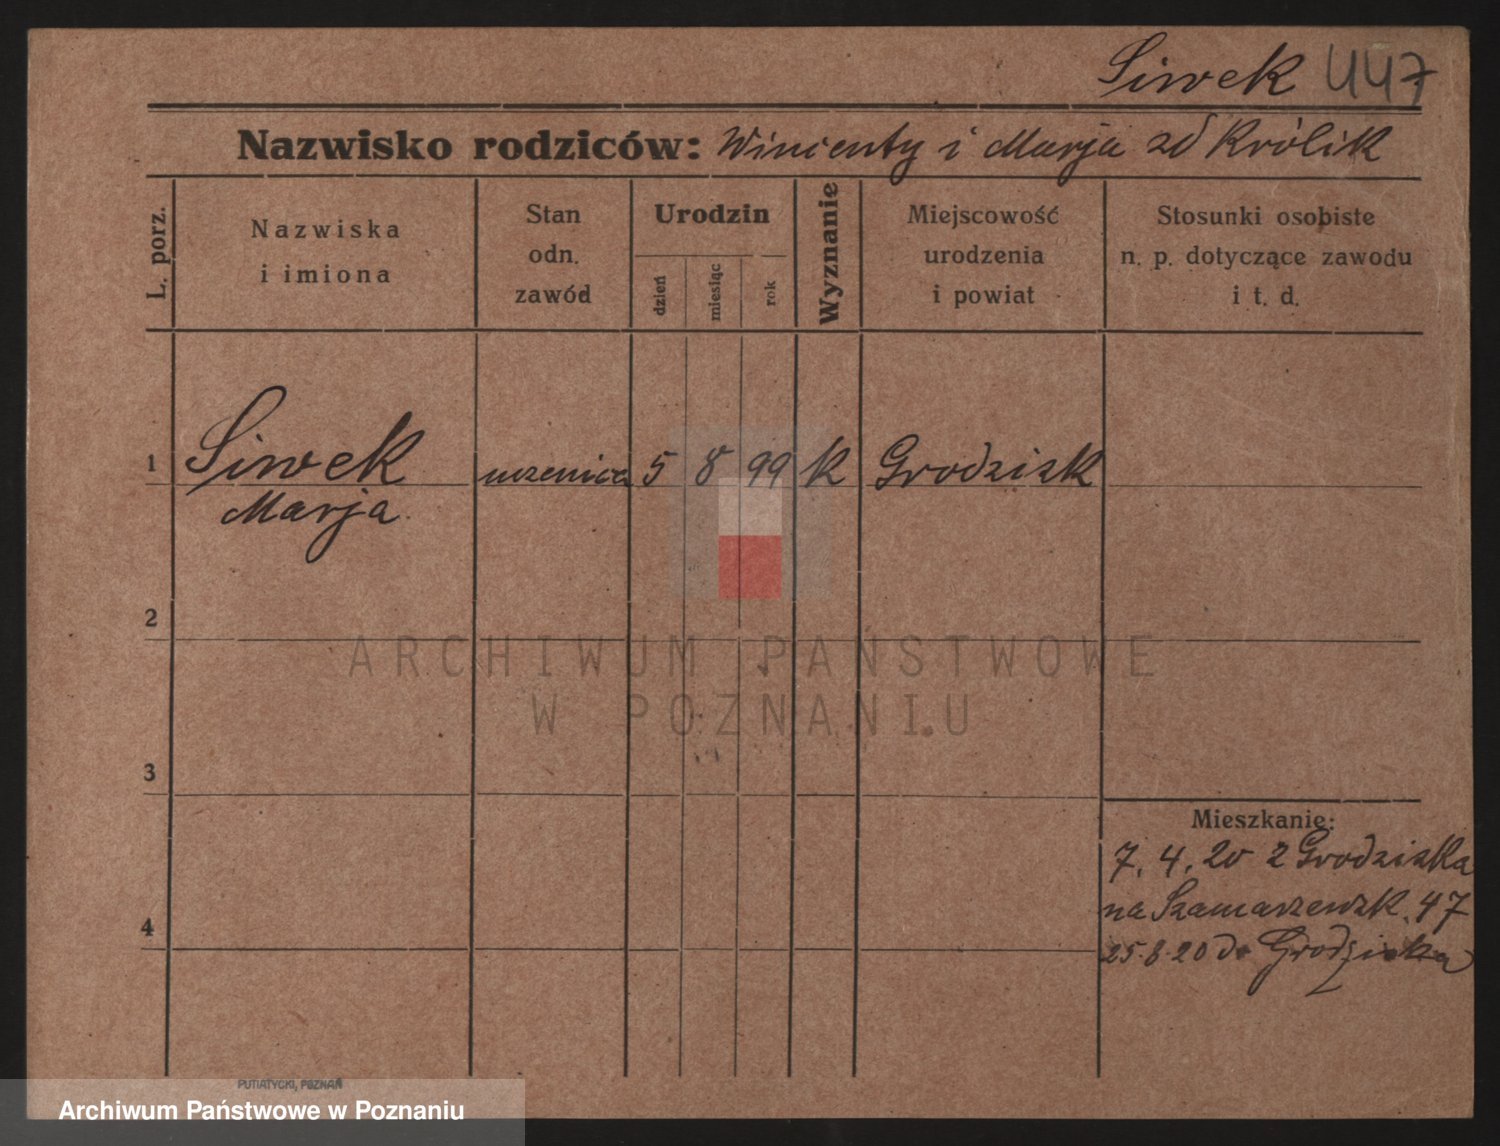 Siwek 447
Nazwisko rodziców: Wincenty i Marja zd Królik
L. porz.
Nazwiska
i imiona
Stan
odn.
zawód
Urodzin
dzień
miesiąc
rok
Wyznanie
Miejscowość
urodzenia
i powiat
Stosunki osobiste
n. p. dotyczące zawodu
i t. d.
1 Siwek uczenica 5 8 99 k Grodzisk
Marja
2
ARCHIWUM PAŃSTWOWE
W POZNANIU
3
Mieszkanie:
7. 4. 20 z Grodziska
na Szamarzewsk. 47
4
25.8.20 do Grodziska
PUTIATYCKI, POZNAŃ
Archiwum Państwowe w Poznaniu